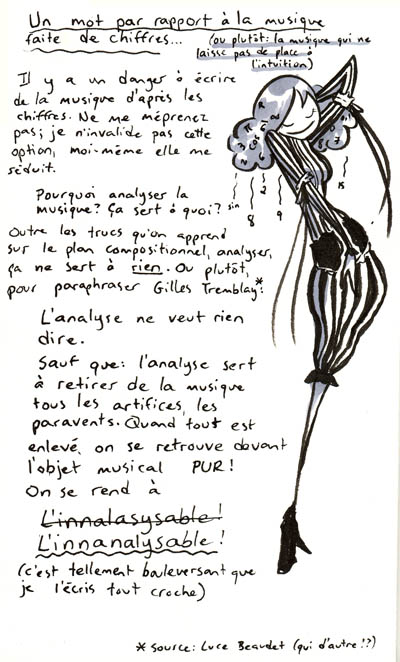 Un mot par rapport à la musique
faite de chiffres...
(ou plutôt: la musique qui ne
laisse pas de place à
l'intuition)
Il y a un danger à écrire
de la musique d'après les
chiffres. Ne me méprenez
pas; je n'invalide pas cette
option, moi-même elle me
séduit.
Pourquoi analyser la
musique? Ça sert à quoi?
Outre les trucs qu'on apprend
sur le plan compositionnel, analyser,
ça ne sert à rien. Ou plutôt,
pour paraphraser Gilles Tremblay*:
L'analyse ne veut rien
dire.
Sauf que: l'analyse sert
à retirer de la musique
tous les artifices, les
paravents. Quand tout est
enlevé, on se retrouve devant
l'objet musical PUR!
On se rend à
L'innalasysable!
L'innanalysable!
(c'est tellement bouleversant que
je l'écris tout croche)
sin
8
2
9
15
* source: Luce Beaudet (qui d'autre!?)